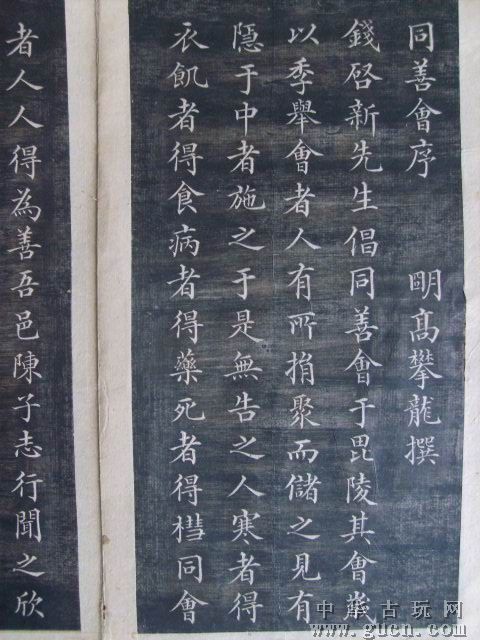 同善會序 眀髙攀龍撰
錢啓新先生倡同善會于毘陵其會歲
以季舉會者人有所捐聚而儲之見有
隱于中者施之于是無告之人寒者得
衣飢者得食病者得藥死者得槥同會
者人人得為善吾邑陳子志行聞之欣
中華古玩网
www.gucn.com